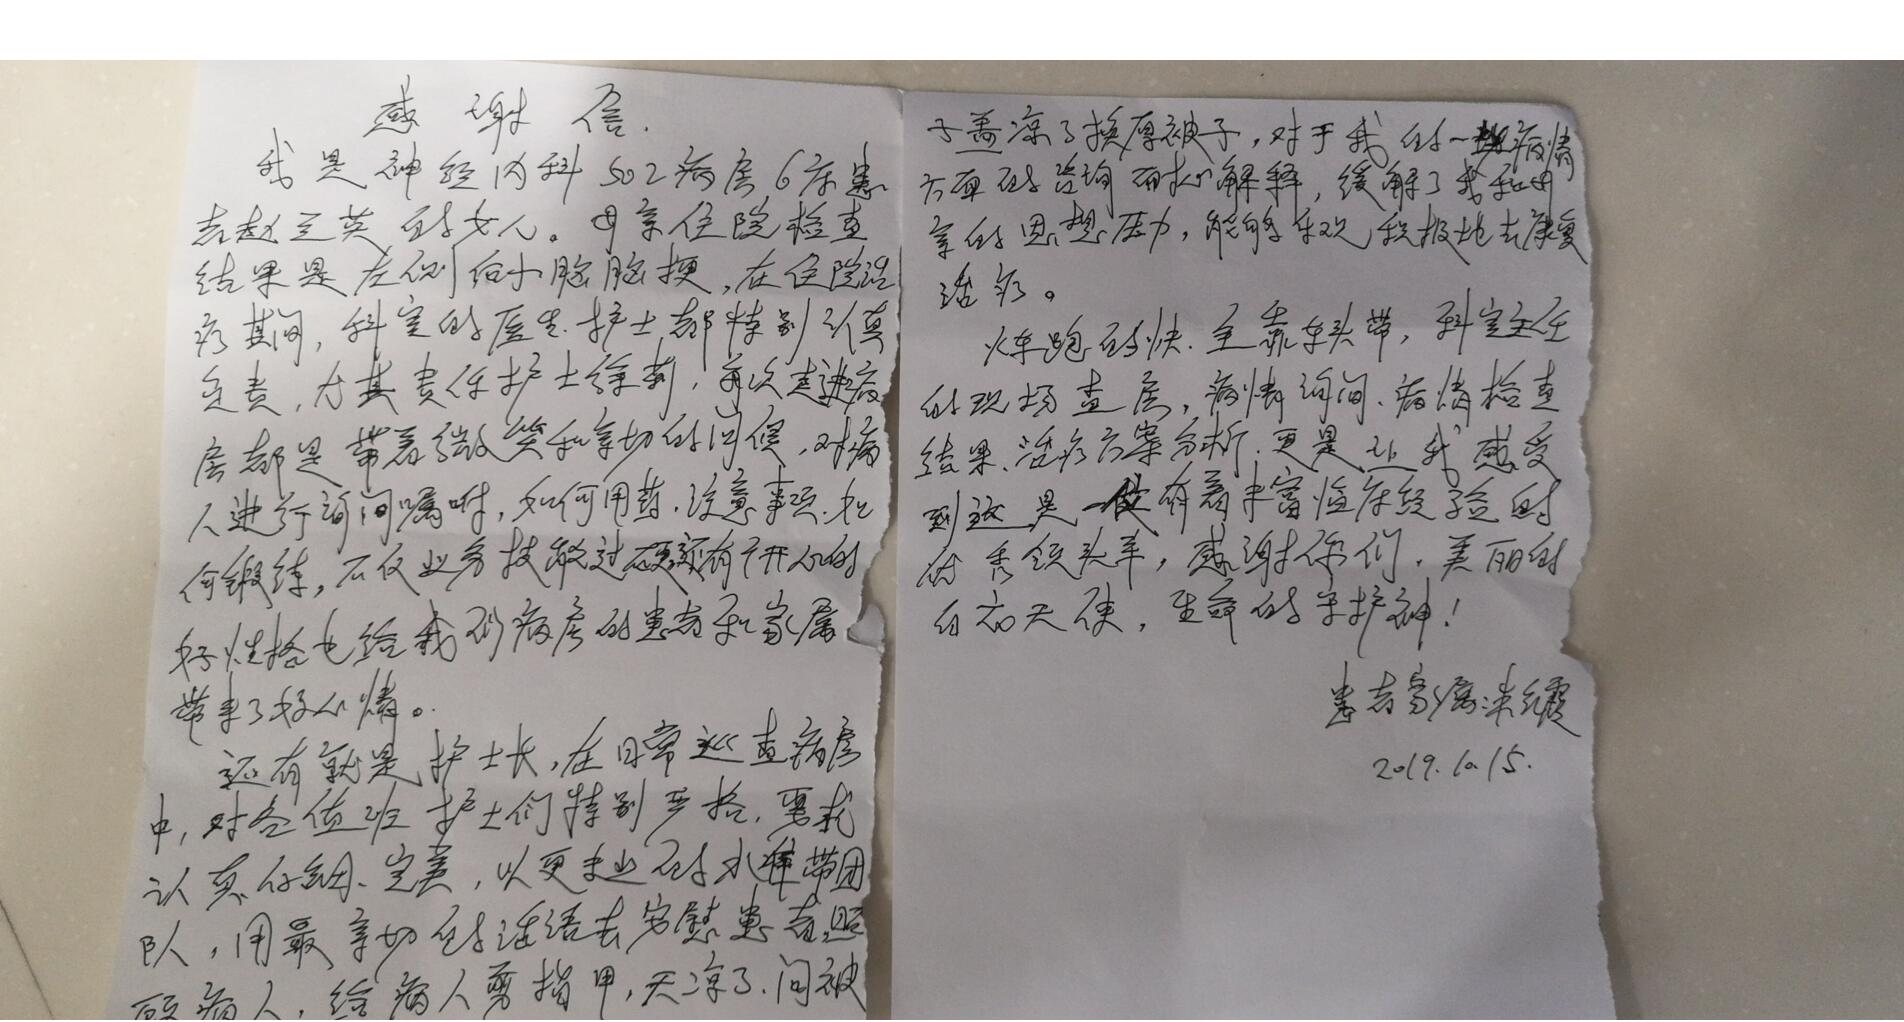 感谢信.
我是神经内科502病房6床患
者赵兰英的女儿。母亲住院检查
结果是左侧后小脑脑梗,在住院治
疗其间,科室的医生.护士都特别认真
负责,尤其责任护士徐莉,每次走进病
房都是带着微笑和亲切的问候,对病
人进行询问嘱咐,如何用药.注意事项.如
何锻练,不仅业务技能过硬还有开心的
好性格也给我们病房的患者和家属
带来了好心情。
还有就是护士长,在日常巡查病房
中,对各值班护士们特别严格,要求
认真.仔细、完美,以更专业的水准带团
队,用最亲切的话语去安慰患者.照
顾病人,给病人剪指甲,天凉了.问被
子盖凉了换厚被子,对于我的一些病情
方面的咨询耐心解释,缓解了我和母
亲的思想压力,能够乐观积极地去康复
治疗。
火车跑的快.全靠车头带,科室主任
的现场查房,病情询问、病情检查
结果、治疗方案分析.更是让我感受
到这是一位有着丰富临床经验的
优秀领头羊,感谢你们.美丽的
白衣天使,生命的守护神!
患者家属:
2019.10.15.